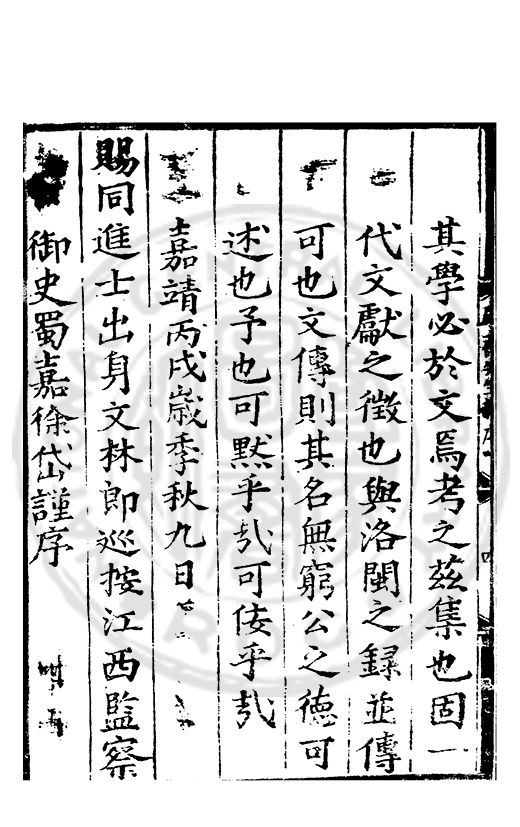 其學必於文焉考之茲集也固一
代文獻之徵也與洛閩之録並傳
可也文傳則其名無窮公之德可
述也予也可黙乎㢤可佞乎㢤
嘉靖丙戌歲季秋九日
賜同進士出身文林郎巡按江西監察
御史蜀嘉徐岱謹序